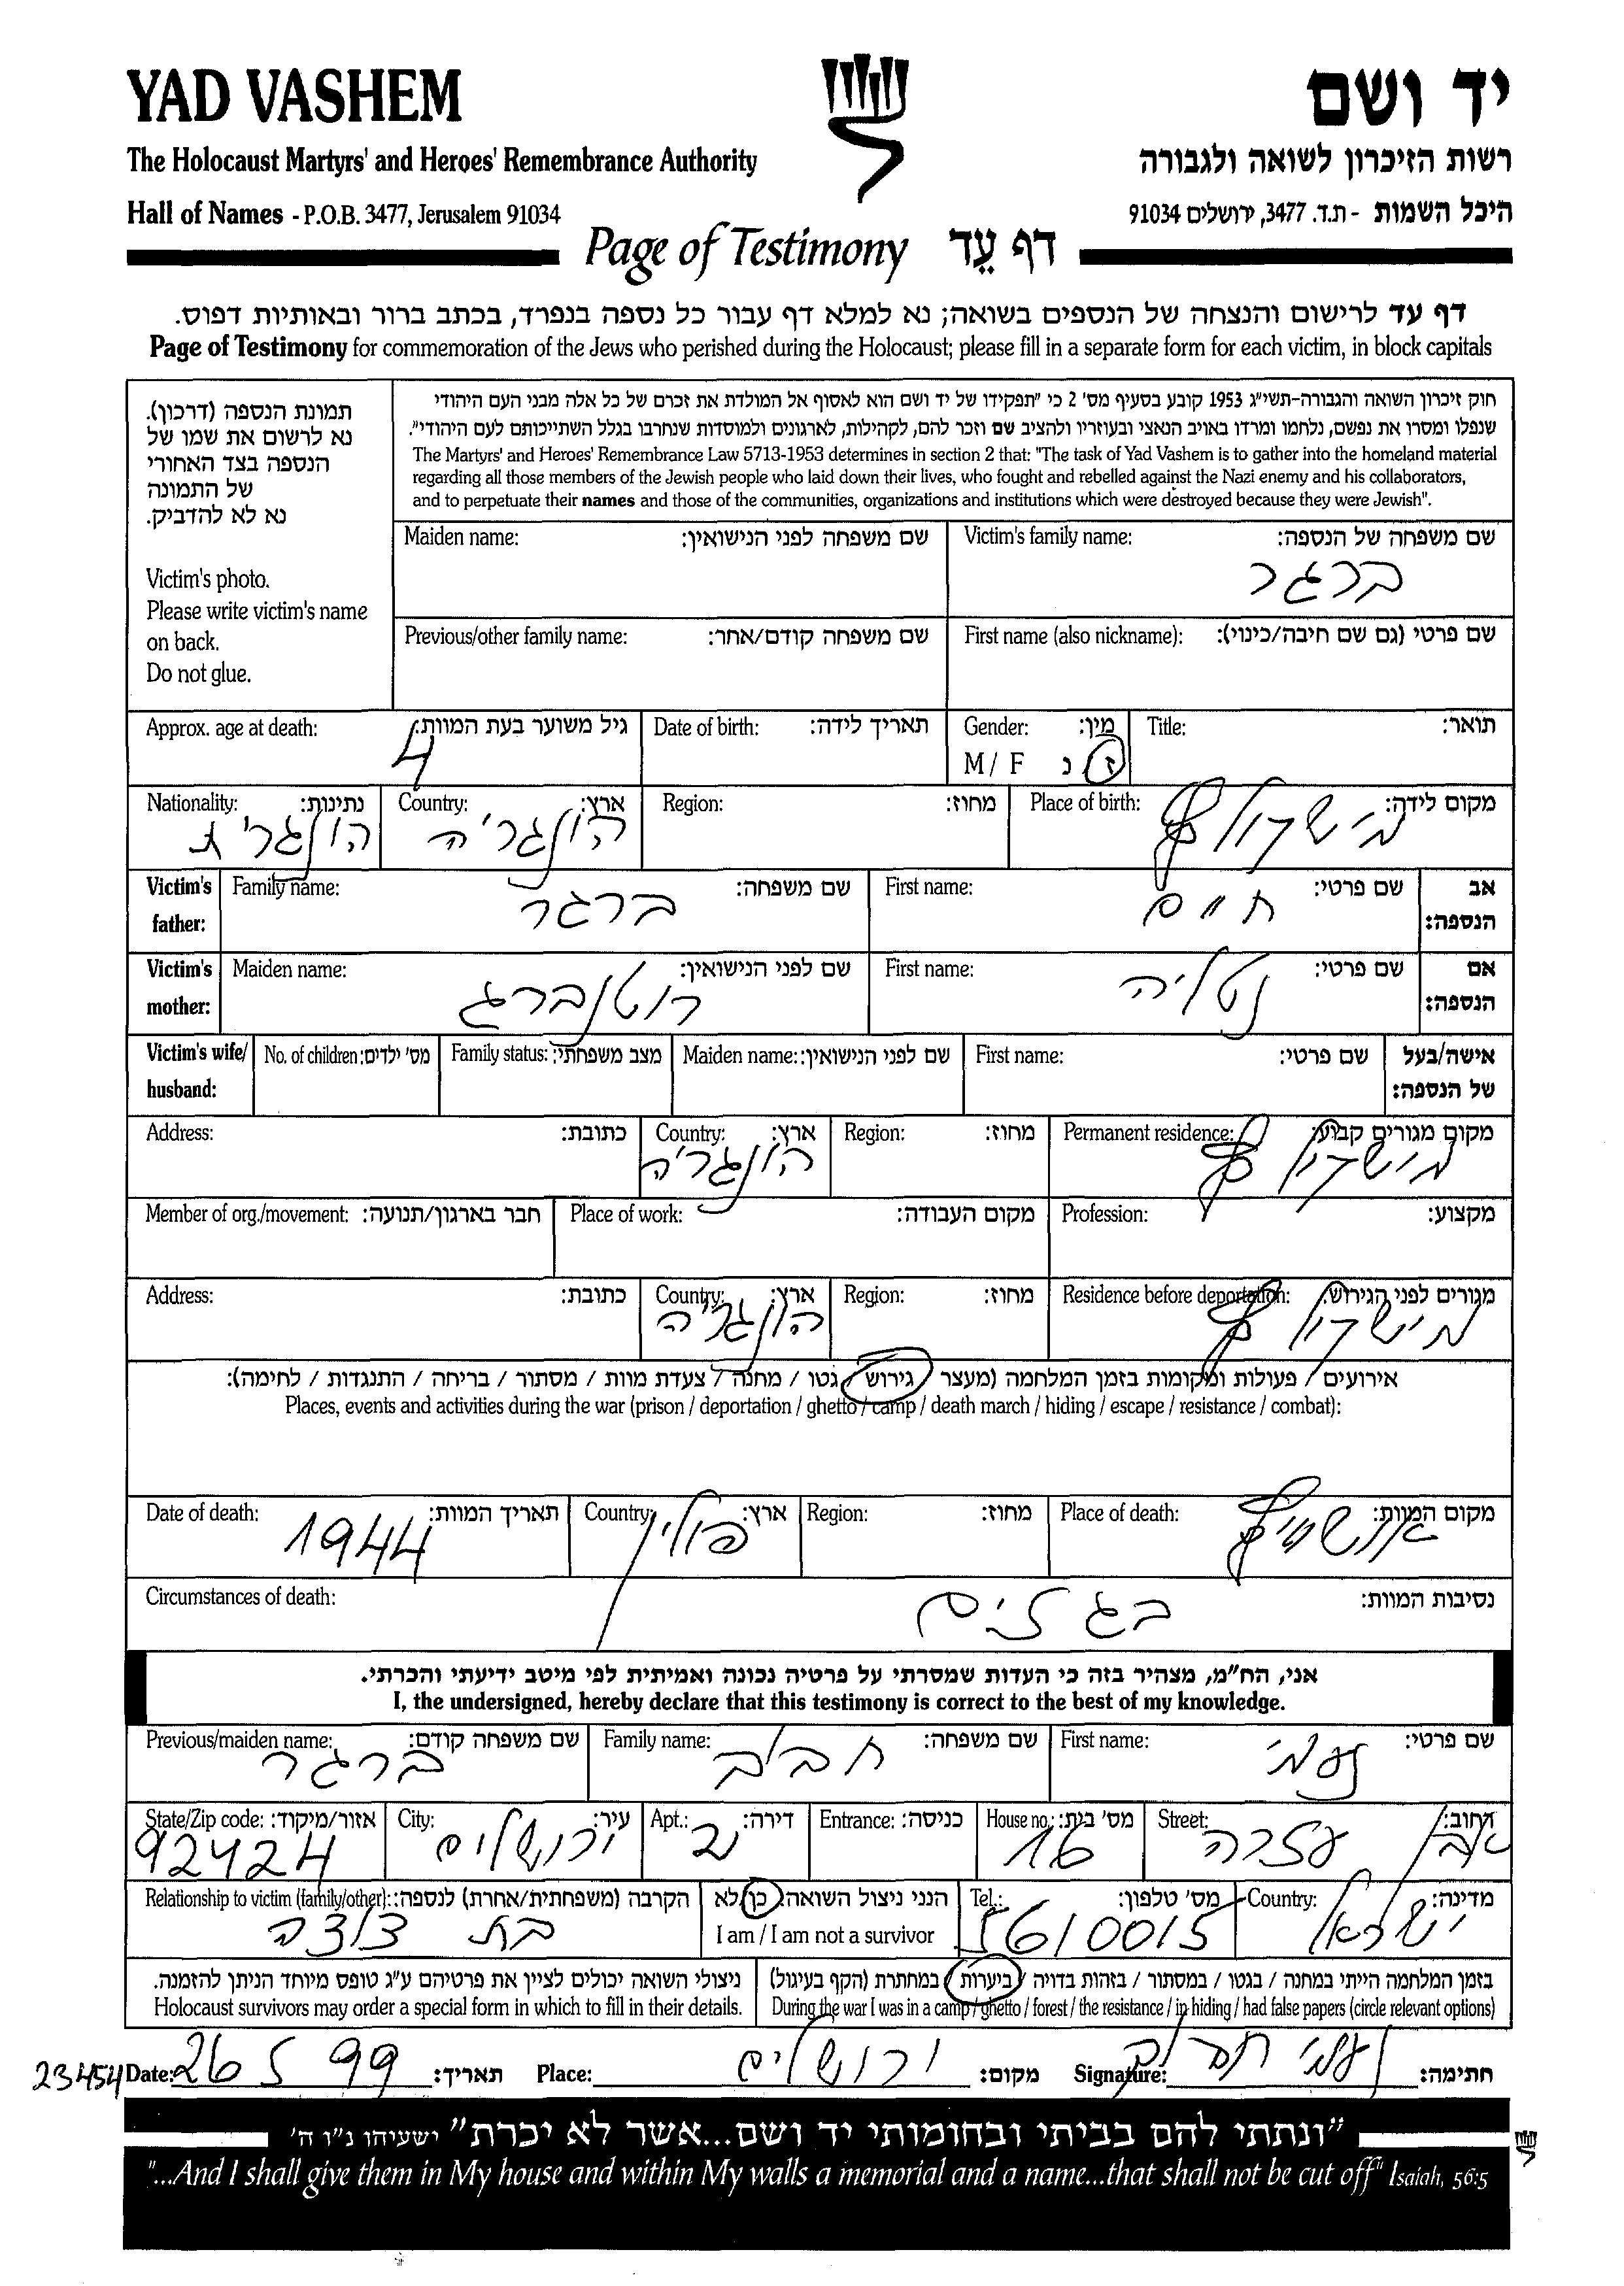 YAD VASHEM
יד ושם
The Holocaust Martyrs' and Heroes' Remembrance Authority
רשות הזיכרון לשואה ולגבורה
Hall of Names - P.O.B. 3477, Jerusalem 91034
היכל השמות - ת.ד. 3477, ירושלים 91034
Page of Testimony דף עֵד
דף עד לרישום והנצחה של הנספים בשואה; נא למלא דף עבור כל נספה בנפרד, בכתב ברור ובאותיות דפוס.
Page of Testimony for commemoration of the Jews who perished during the Holocaust; please fill in a separate form for each victim, in block capitals
תמונת הנספה (דרכון).
נא לרשום את שמו של
הנספה בצד האחורי
של התמונה
נא לא להדביק.
Victim's photo.
Please write victim's name
on back.
Do not glue.
חוק זיכרון השואה והגבורה-תשי"ג 1953 קובע בסעיף מס' 2 כי "תפקידו של יד ושם הוא לאסוף אל המולדת את זכרם של כל אלה מבני העם היהודי
שנפלו ומסרו את נפשם, נלחמו ומרדו באויב הנאצי ובעוזריו ולהציב שם וזכר להם, לקהילות, לארגונים ולמוסדות שנחרבו בגלל השתייכותם לעם היהודי".
The Martyrs' and Heroes' Remembrance Law 5713-1953 determines in section 2 that: "The task of Yad Vashem is to gather into the homeland material
regarding all those members of the Jewish people who laid down their lives, who fought and rebelled against the Nazi enemy and his collaborators,
and to perpetuate their names and those of the communities, organizations and institutions which were destroyed because they were Jewish".
Victim's family name: שם משפחה של הנספה:
ברגר
Maiden name: שם משפחה לפני הנישואין:
First name (also nickname): שם פרטי (גם שם חיבה/כינוי):
Previous/other family name: שם משפחה קודם/אחר:
Title: תואר:
Gender: מין:
M / F ז נ
Date of birth: תאריך לידה:
Approx. age at death: גיל משוער בעת המוות:
4
Place of birth: מקום לידה:
מישקולץ
Region: מחוז:
Country: ארץ:
הונגריה
Nationality: נתינות:
הונגרית
אב
הנספה:
First name: שם פרטי:
חיים
Family name: שם משפחה:
ברגר
Victim's
father:
אם
הנספה:
First name: שם פרטי:
נטליה
Maiden name: שם לפני הנישואין:
רוטנברג
Victim's
mother:
אישה/בעל
של הנספה:
First name: שם פרטי:
Maiden name: שם לפני הנישואין:
Family status: מצב משפחתי:
No. of children: מס' ילדים:
Victim's wife/
husband:
Permanent residence: מקום מגורים קבוע:
מישקולץ
Region: מחוז:
Country: ארץ:
הונגריה
Address: כתובת:
Profession: מקצוע:
Place of work: מקום העבודה:
Member of org./movement: חבר בארגון/תנועה:
Residence before deportation: מגורים לפני הגירוש:
מישקולץ
Region: מחוז:
Country: ארץ:
הונגריה
Address: כתובת:
אירועים / פעולות ומקומות בזמן המלחמה (מעצר / גירוש / גטו / מחנה / צעדת מוות / מסתור / בריחה / התנגדות / לחימה):
Places, events and activities during the war (prison / deportation / ghetto / camp / death march / hiding / escape / resistance / combat):
Place of death: מקום המוות:
אושוויץ
Region: מחוז:
Country: ארץ:
פולין
Date of death: תאריך המוות:
1944
Circumstances of death: נסיבות המוות:
בגזים
אני, הח"מ, מצהיר בזה כי העדות שמסרתי על פרטיה נכונה ואמיתית לפי מיטב ידיעתי והכרתי.
I, the undersigned, hereby declare that this testimony is correct to the best of my knowledge.
First name: שם פרטי:
נעמי
Family name: שם משפחה:
חבלב
Previous/maiden name: שם משפחה קודם:
ברגר
Street: רחוב:
אבן עזרה
House no.: מס' בית:
16
Entrance: כניסה:
Apt.: דירה:
2
City: עיר:
ירושלים
State/Zip code: אזור/מיקוד:
92424
Country: מדינה:
ישראל
Tel.: מס' טלפון:
5610015
הנני ניצול השואה: כן/לא
I am / I am not a survivor
Relationship to victim (family/other): הקרבה (משפחתית/אחרת) לנספה:
בת דודה
בזמן המלחמה הייתי במחנה / בגטו / במסתור / בזהות בדויה / ביערות / במחתרת (הקף בעיגול)
During the war I was in a camp / ghetto / forest / the resistance / in hiding / had false papers (circle relevant options)
ניצולי השואה יכולים לציין את פרטיהם ע"ג טופס מיוחד הניתן להזמנה.
Holocaust survivors may order a special form in which to fill in their details.
23454 Date: 26 5 99 תאריך: Place: ירושלים מקום: Signature: נעמי חבלב חתימה:
"ונתתי להם בביתי ובחומותי יד ושם...אשר לא יכרת" ישעיהו נ"ו ה'
"...And I shall give them in My house and within My walls a memorial and a name...that shall not be cut off" Isaiah, 56:5